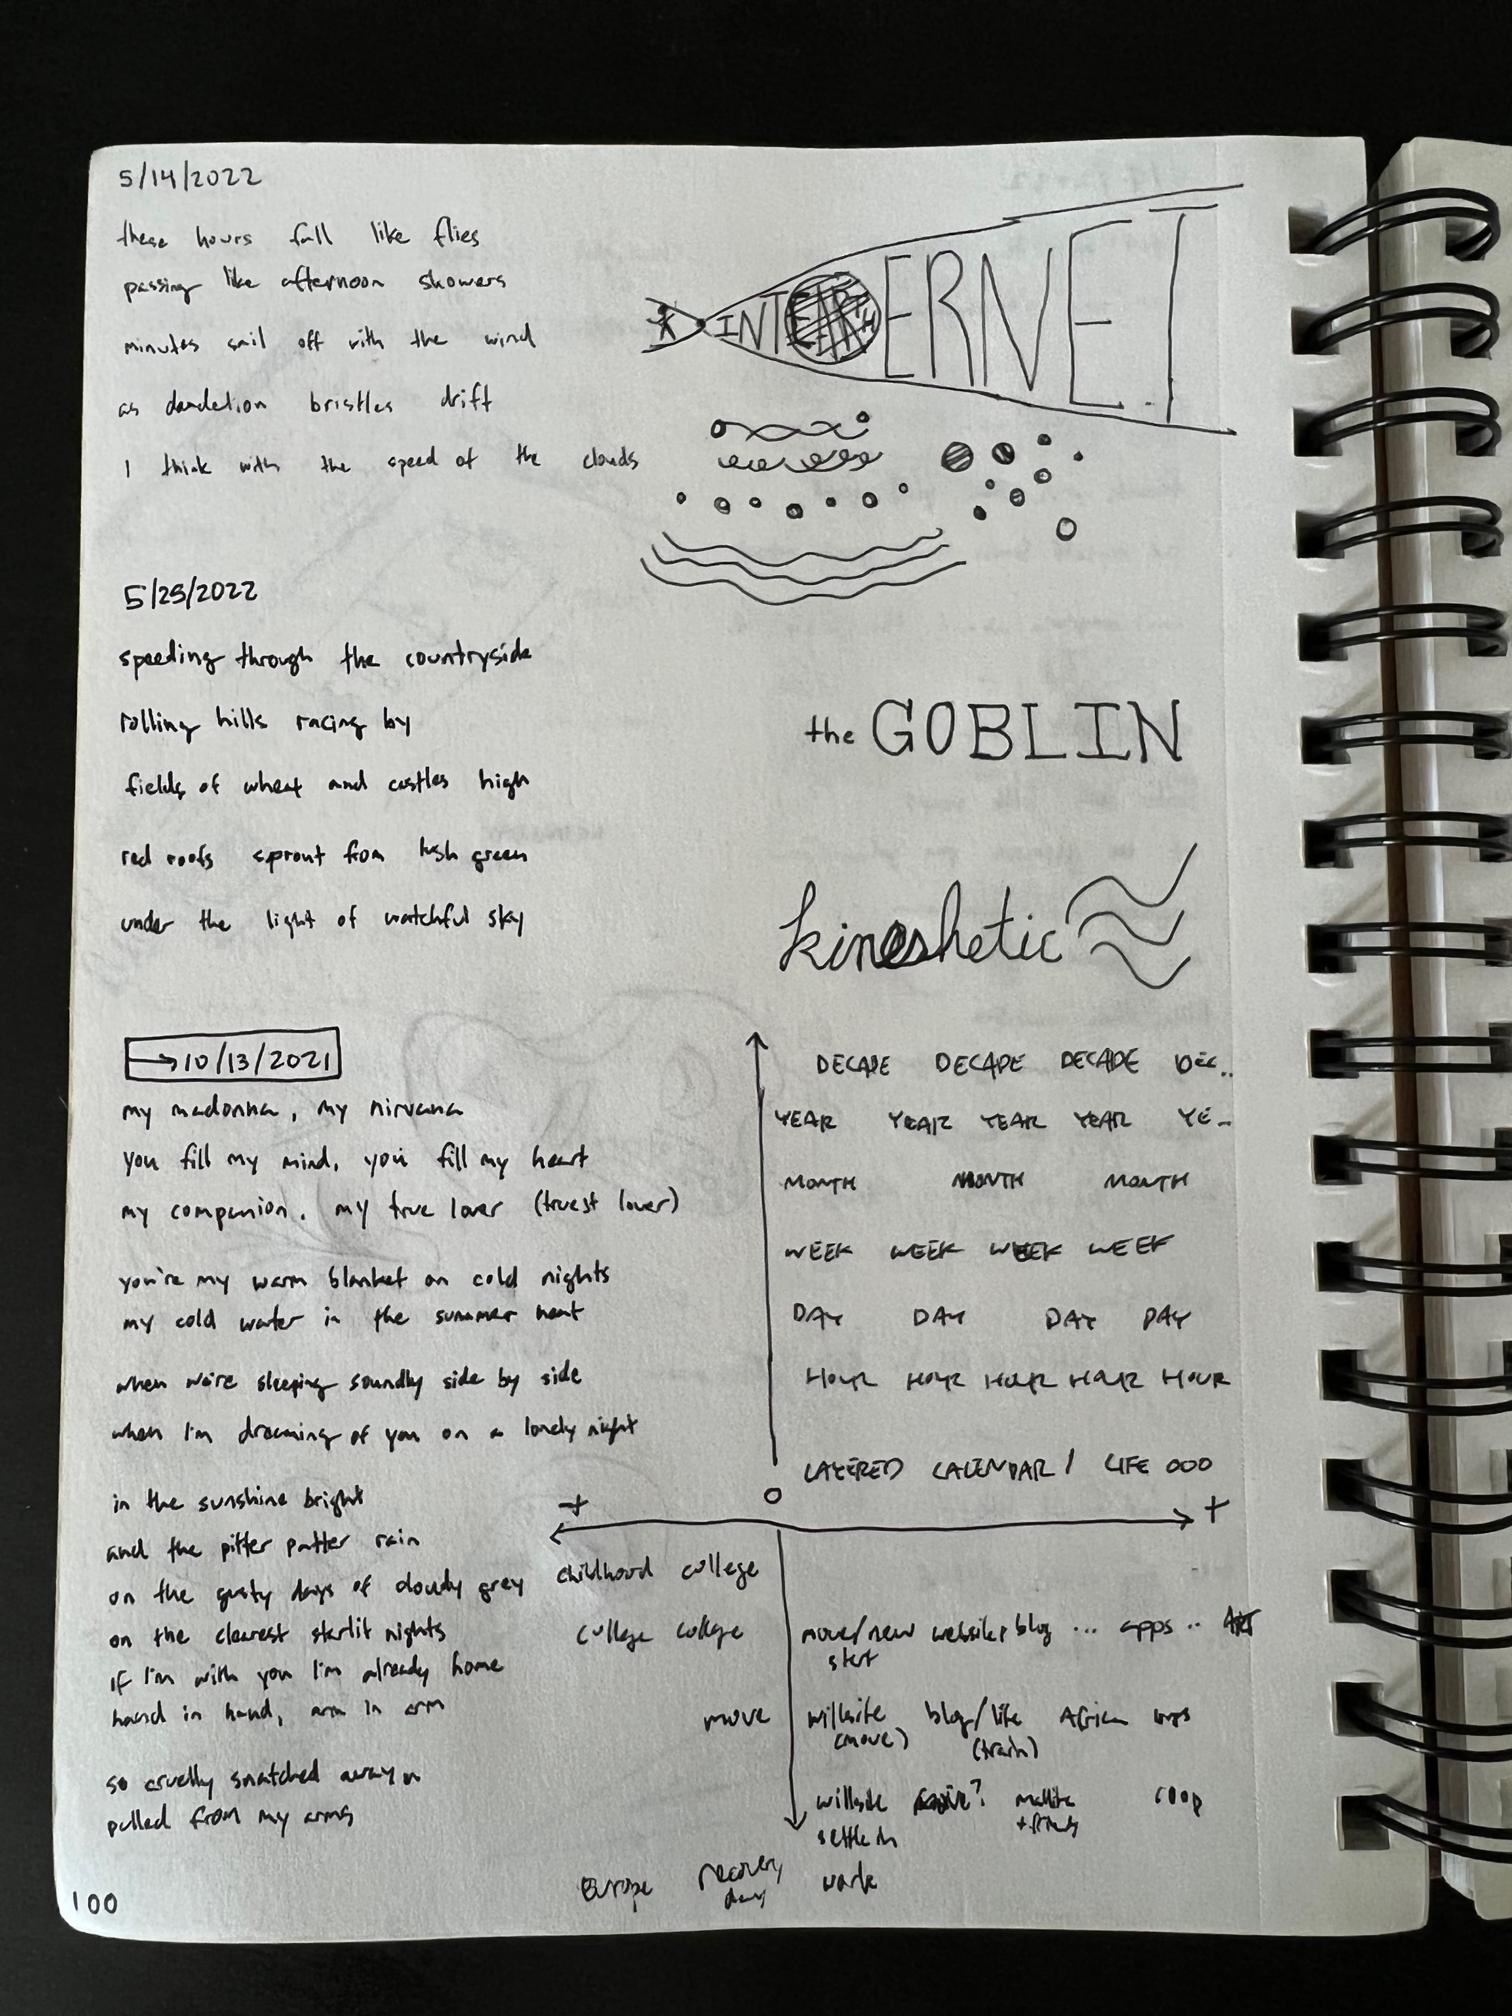 5/14/2022
these hours fall like flies
passing like afternoon showers
minutes sail off with the wind
as dandelion bristles drift
I think with the speed of the clouds
5/25/2022
speeding through the countryside
rolling hills racing by
fields of wheat and castles high
red roofs sprout from lush green
under the light of watchful sky
→10/13/2021
my madonna, my nirvana
you fill my mind, you fill my heart
my companion, my true lover (truest lover)
you're my warm blanket on cold nights
my cold water in the summer heat
when we're sleeping soundly side by side
when I'm dreaming of you on a lonely night
in the sunshine bright
and the pitter patter rain
on the gusty days of cloudy grey
on the clearest starlit nights
if I'm with you I'm already home
hand in hand, arm in arm
so cruelly snatched away
pulled from my arms
100
INTERNET
EARTH
the GOBLIN
kineshetic
DECADE DECADE DECADE DEC..
YEAR YEAR YEAR YEAR YE..
MONTH MONTH MONTH
WEEK WEEK WEEK WEEK
DAY DAY DAY DAY
HOUR HOUR HOUR HOUR HOUR
LAYERED CALENDAR / LIFE 000
0
+ +
childhood college
college college move/new start website, blog ... apps .. ART
move willsite (move) blog/life (train) Africa
willsite settle in move? + friends coop
Europe recovery day work